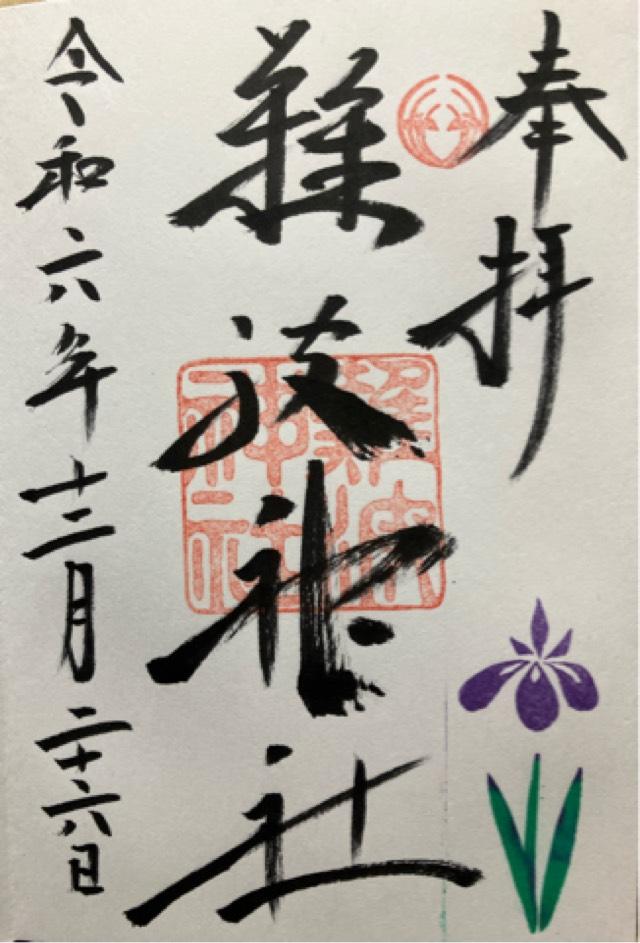 奉拝
難波神社
令和六年十二月二十六日
難波神社